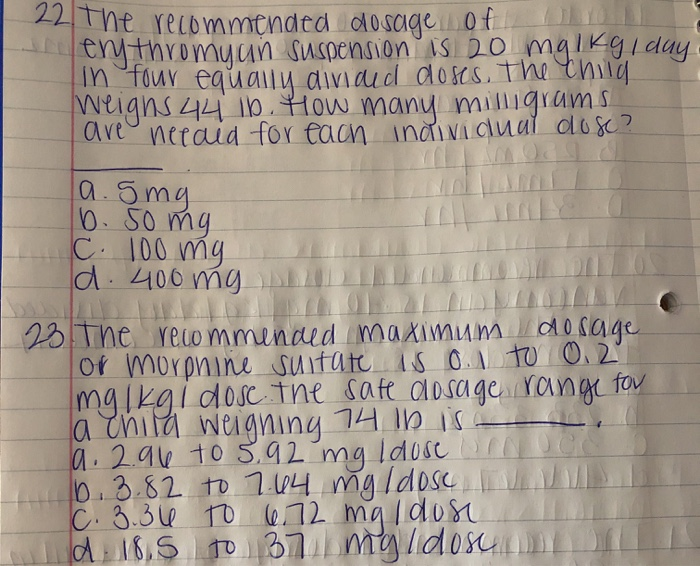 22. The recommended dosage of
erythromycin suspension is 20 mg/kg/day
in four equally divided doses. The child
weighs 44 lb. How many milligrams
are needed for each individual dose?
a. 5mg
b. 50 mg
c. 100 mg
d. 400 mg
23. The recommended maximum dosage
of morphine sulfate is 0.1 to 0.2
mg/kg/dose. the safe dosage range for
a child weighing 74 lb is ________.
a. 2.96 to 5.92 mg/dose
b. 3.82 to 7.64 mg/dose
c. 3.36 to 6.72 mg/dose
d. 18.5 to 37 mg/dose